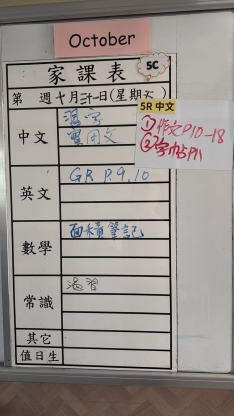 October
家課表
5C
第 週十月三十一日(星期五)
5R 中文
① 作文P10-18
中文
溫習
實用文
英文
GR P.9, 10
數學
面積筆記
常識
溫習
其它
值日生